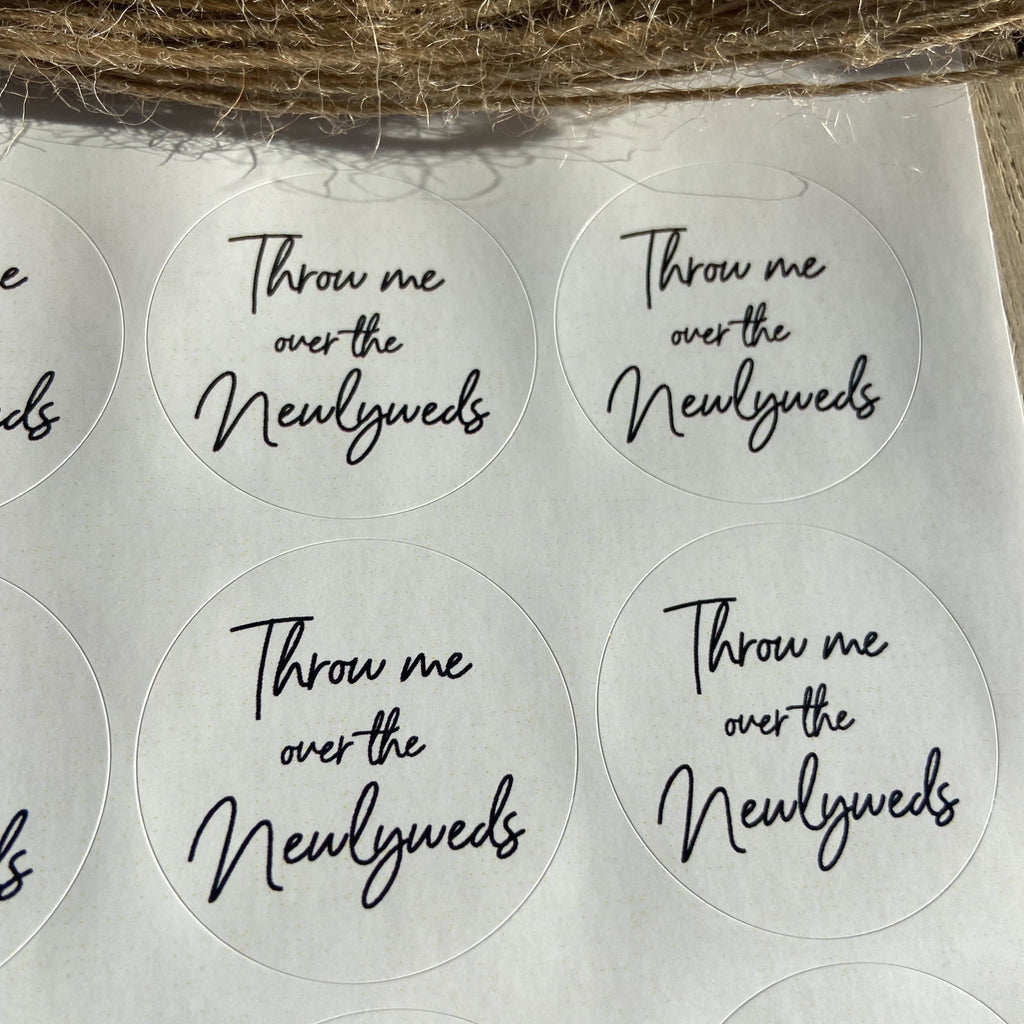 e
eds
Throw me
over the
Newlyweds
Throw me
over the
Newlyweds
ds
Throw me
over the
Newlyweds
Throw me
over the
Newlyweds